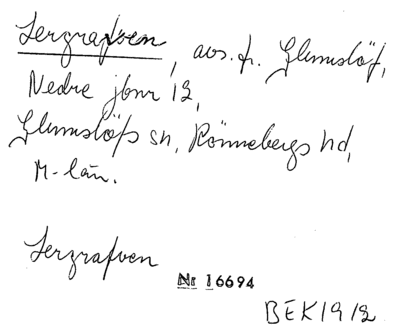 Lergrafven, avs. fr. Glumslöf,
Nedre jbnr 12,
Glumslöfs sn, Rönnebergs hd,
M-län.
Lergrafven
Nr 16694
BEK 1912